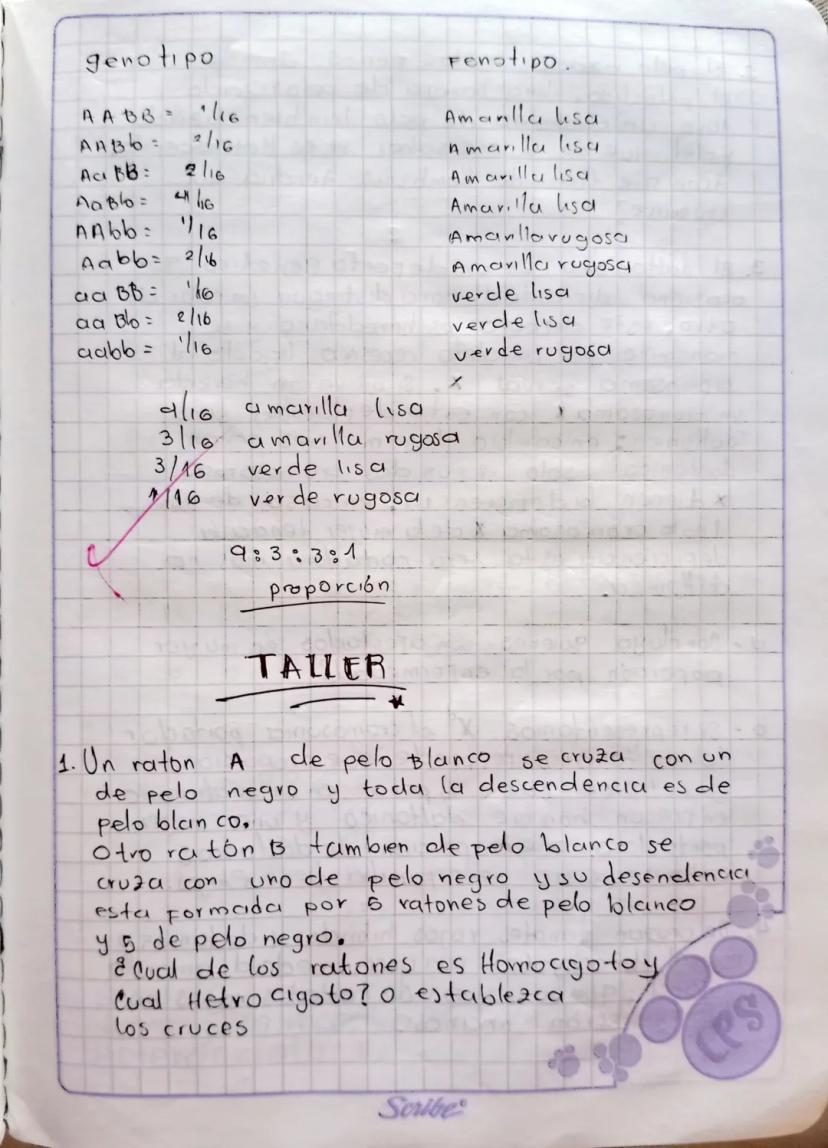 genotipo Fenotipo.
AABB = 1/16 Amarilla lisa
AABb = 2/16 Amarilla lisa
AaBB: 2/16 Amarilla lisa
AaBb = 4/16 Amarilla lisa
AAbb = 1/16 Amarilla rugosa
Aabb = 2/16 Amarilla rugosa
aaBB = 1/16 verde lisa
aaBb = 2/16 verde lisa
aabb = 1/16 verde rugosa
9/16 amarilla lisa
3/16 amarilla rugosa
3/16 verde lisa
1/16 verde rugosa
9:3:3:1
proporción
TALLER
1. Un raton A de pelo Blanco se cruza con un
de pelo negro y toda la descendencia es de
pelo blanco.
Otro ratón B tambien de pelo blanco se
cruza con uno de pelo negro y su desendencia
esta formada por 5 ratones de pelo blanco
y 5 de pelo negro.
¿Cual de los ratones es Homocigoto y
Cual Hetrocigoto? o establezca
los cruces
CPS
Scribe